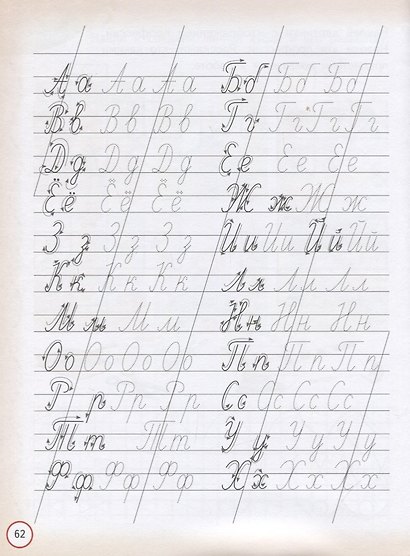 Аа Аа Аа Бб Бб Бб
Вв Вв Вв Гг Гг Гг Гг
Дд Дд Дд Ее Ее Ее
Ёё Ёё Ёё Жж Жж Жж
Зз Зз Зз Ии Ии Йй Йй
Кк Кк Кк Лл Лл Лл
Мм Мм Мм Нн Нн Нн
Оо Оо Оо Оо Пп Пп Пп
Рр Рр Рр Сс Сс Сс Сс
Тт Тт Уу Уу Уу
Фф Фф Фф Хх Хх Хх
62